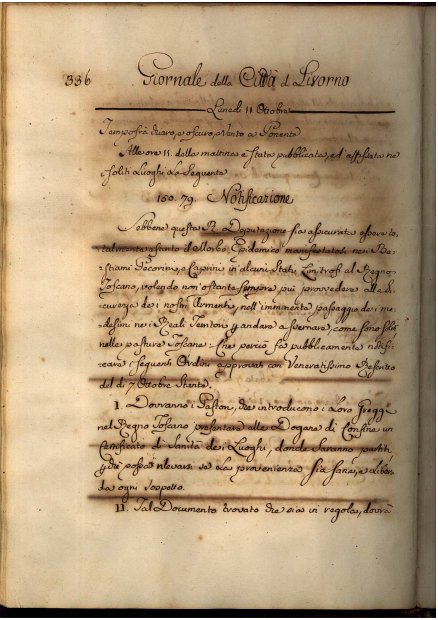 336 Giornale della Città di Livorno
Lunedì 11 Ottobre
Tempo frà chiaro, e oscuro, e Vento a Ponente
Alle ore 11. della mattina è stata pubblicata, ed' affissata ne
i soliti Luoghi La Seguente
150. 79. Notificazione
Sebbene questa R. Deputazione sia assicurata essere to,
talmente esanto dello Epidemico manifestatosi nei Be,
stiami Pecorini, e Caprini in alcuni Stati Limitrofi al Regno
Toscano, volendo non'ostante sempre più provvedere alla Si,
curezza dei nostri Armenti, nell'imminente passaggio dei me,
desimi nei Reali Territorj per andare a svernare, come sono soliti
nelle pasture Toscane: Che perciò fà pubblicamente notifi,
care i seguenti Ordini approvati con Veneratissimo Rescritto
del dì 7 Ottobre Stante.
I. Dovranno i Pastori, che introducono i Loro Greggi
nel Regno Toscano presentare alle Dogane di Confine un
Certificato di Sanità dei Luoghi, donde Saranno partiti,
onde possa rilevarsi se La provenienza Sia Sana, e Libera
da ogni sospetto.
II. Tal Documento trovato che sia in regola, dovrà